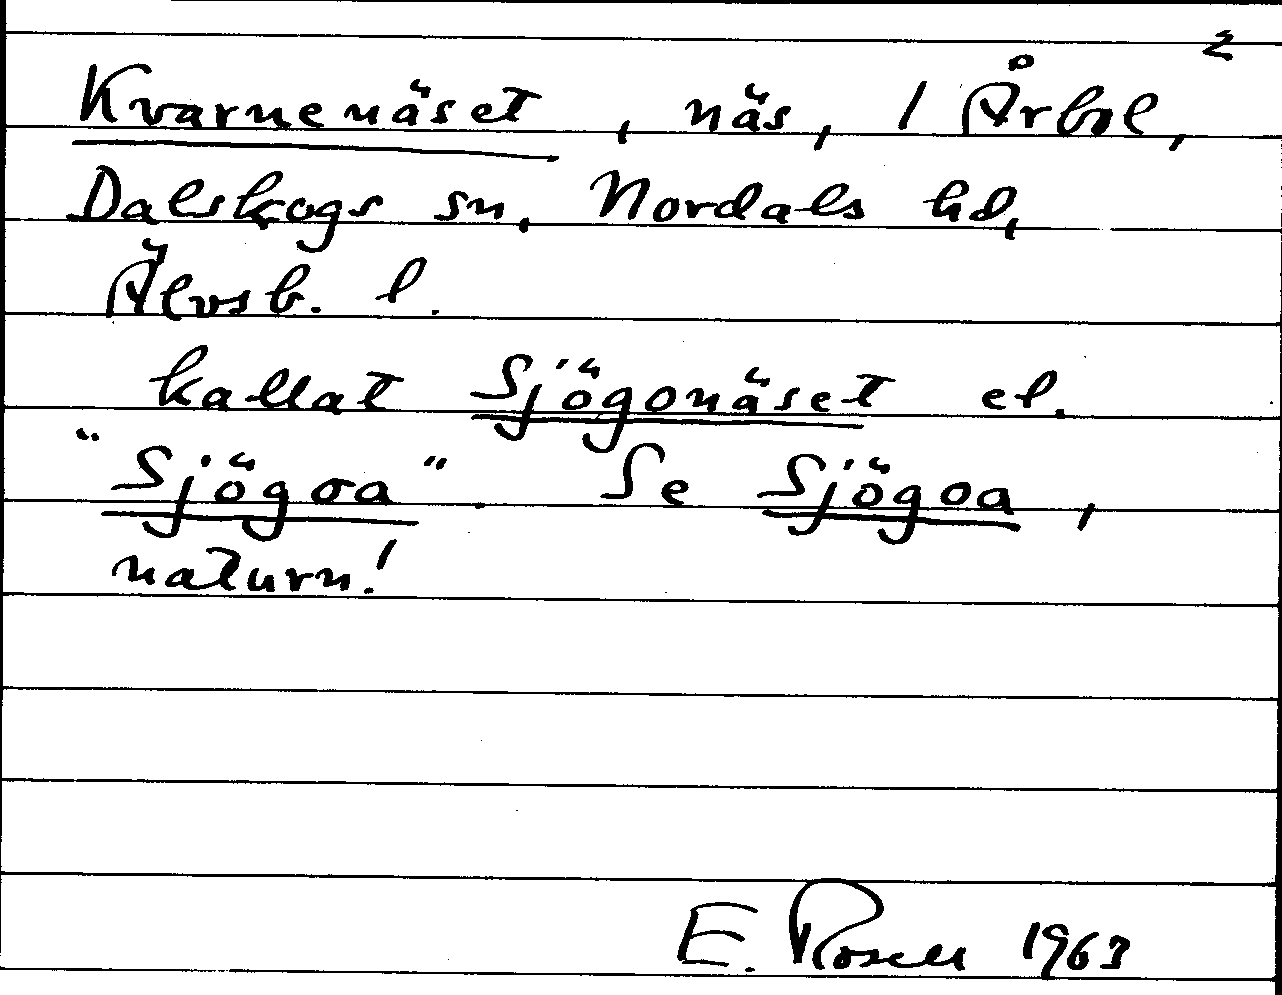 2
Kvarnenäset, näs, / Årbol,
Dalskogs sn, Nordals hd,
Älvsb. l.
kallat Sjögonäset el.
"Sjögoa". Se Sjögoa,
naturn!
E. Rosell 1963